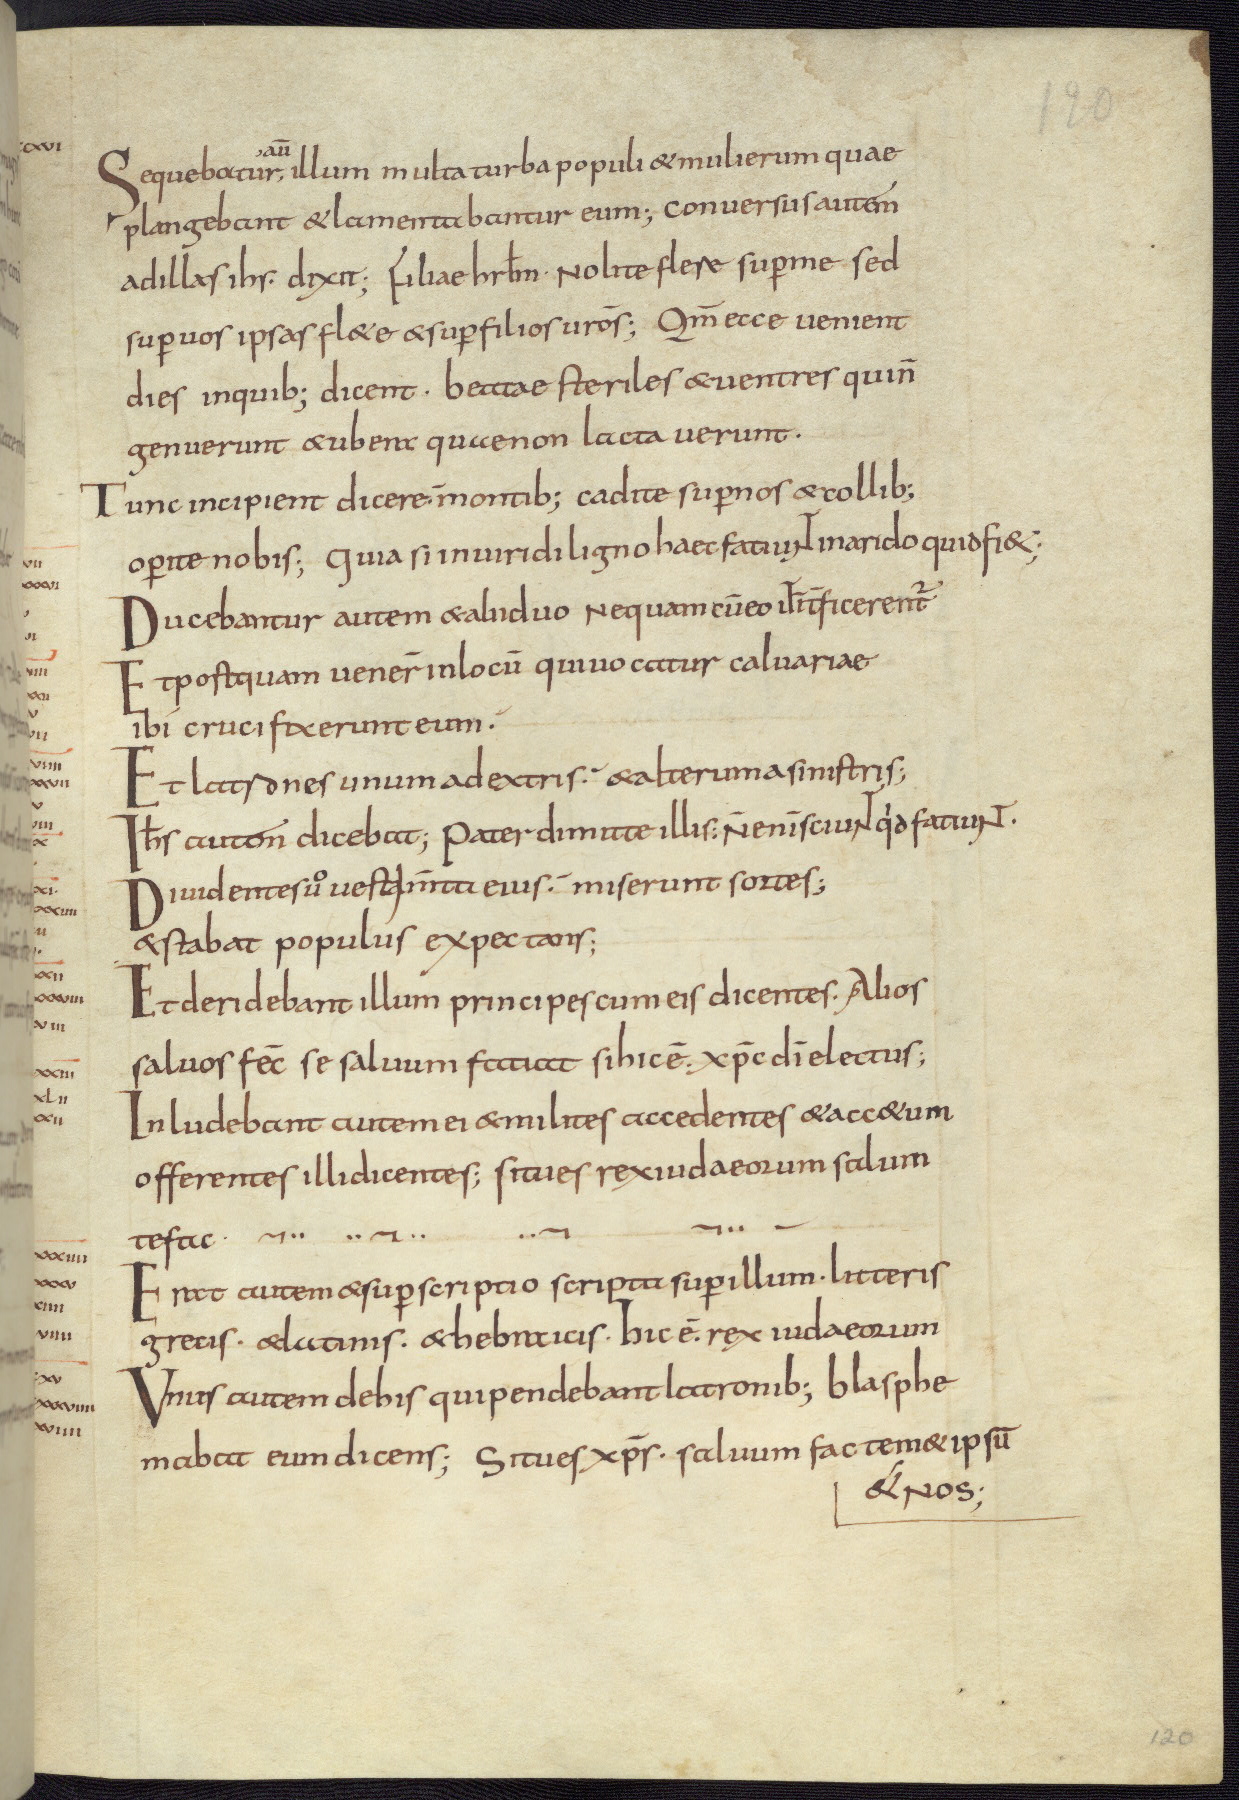 120
Sequebatur, aū illum multa turba populi & mulierum quae
plangebant & lamentabantur eum; conversus autem
ad illas ihs. dixit; Filiae hrlm. Nolite flere sup̄ me sed
sup̄ vos ipsas fl&e & sup̄ filios vr̄os; Qm̄ ecce venient
dies in quib; dicent. beatae steriles & ventres qui n̄
genuerunt & ubera quae non lactaverunt.
Tunc incipient dicere montib; cadite sup̄ nos & collib;
op̄ite nobis; Quia si in viridi ligno haec faciuNT in arido quid fi&;
Ducebantur autem & alii duo nequam cū eo ut int̄ficerent̄
Et postquam vener̄ in locū qui vocatur calvariae
ibi crucifixerunt eum.
Et latrones unum a dextris. & alterum a sinistris;
Ihs autem dicebat; Pater dimitte illis. N̄ enī sciuNT qd faciuNT.
Dividentes ū vestim̄ta eius. miserunt sortes;
& stabat populus expectans;
Et deridebant illum principes cum eis dicentes. Alios
salvos fec̄ se salvum faciat si hic ē. xp̄c dī electus;
Inludebant autem ei & milites accedentes & ac&um
offerentes illi dicentes; si tu es rex iudaeorum salvum
te fac.
Erat autem & sup̄scriptio scripta sup̄ illum. litteris
grecis. & latinis. & hebraicis. hic ē. rex iudaeorum
Unus autem de his qui pendebant latronib; blasphe
mabat eum dicens; Si tu es xp̄s. salvum fac tem& ipsū
& nos;
120